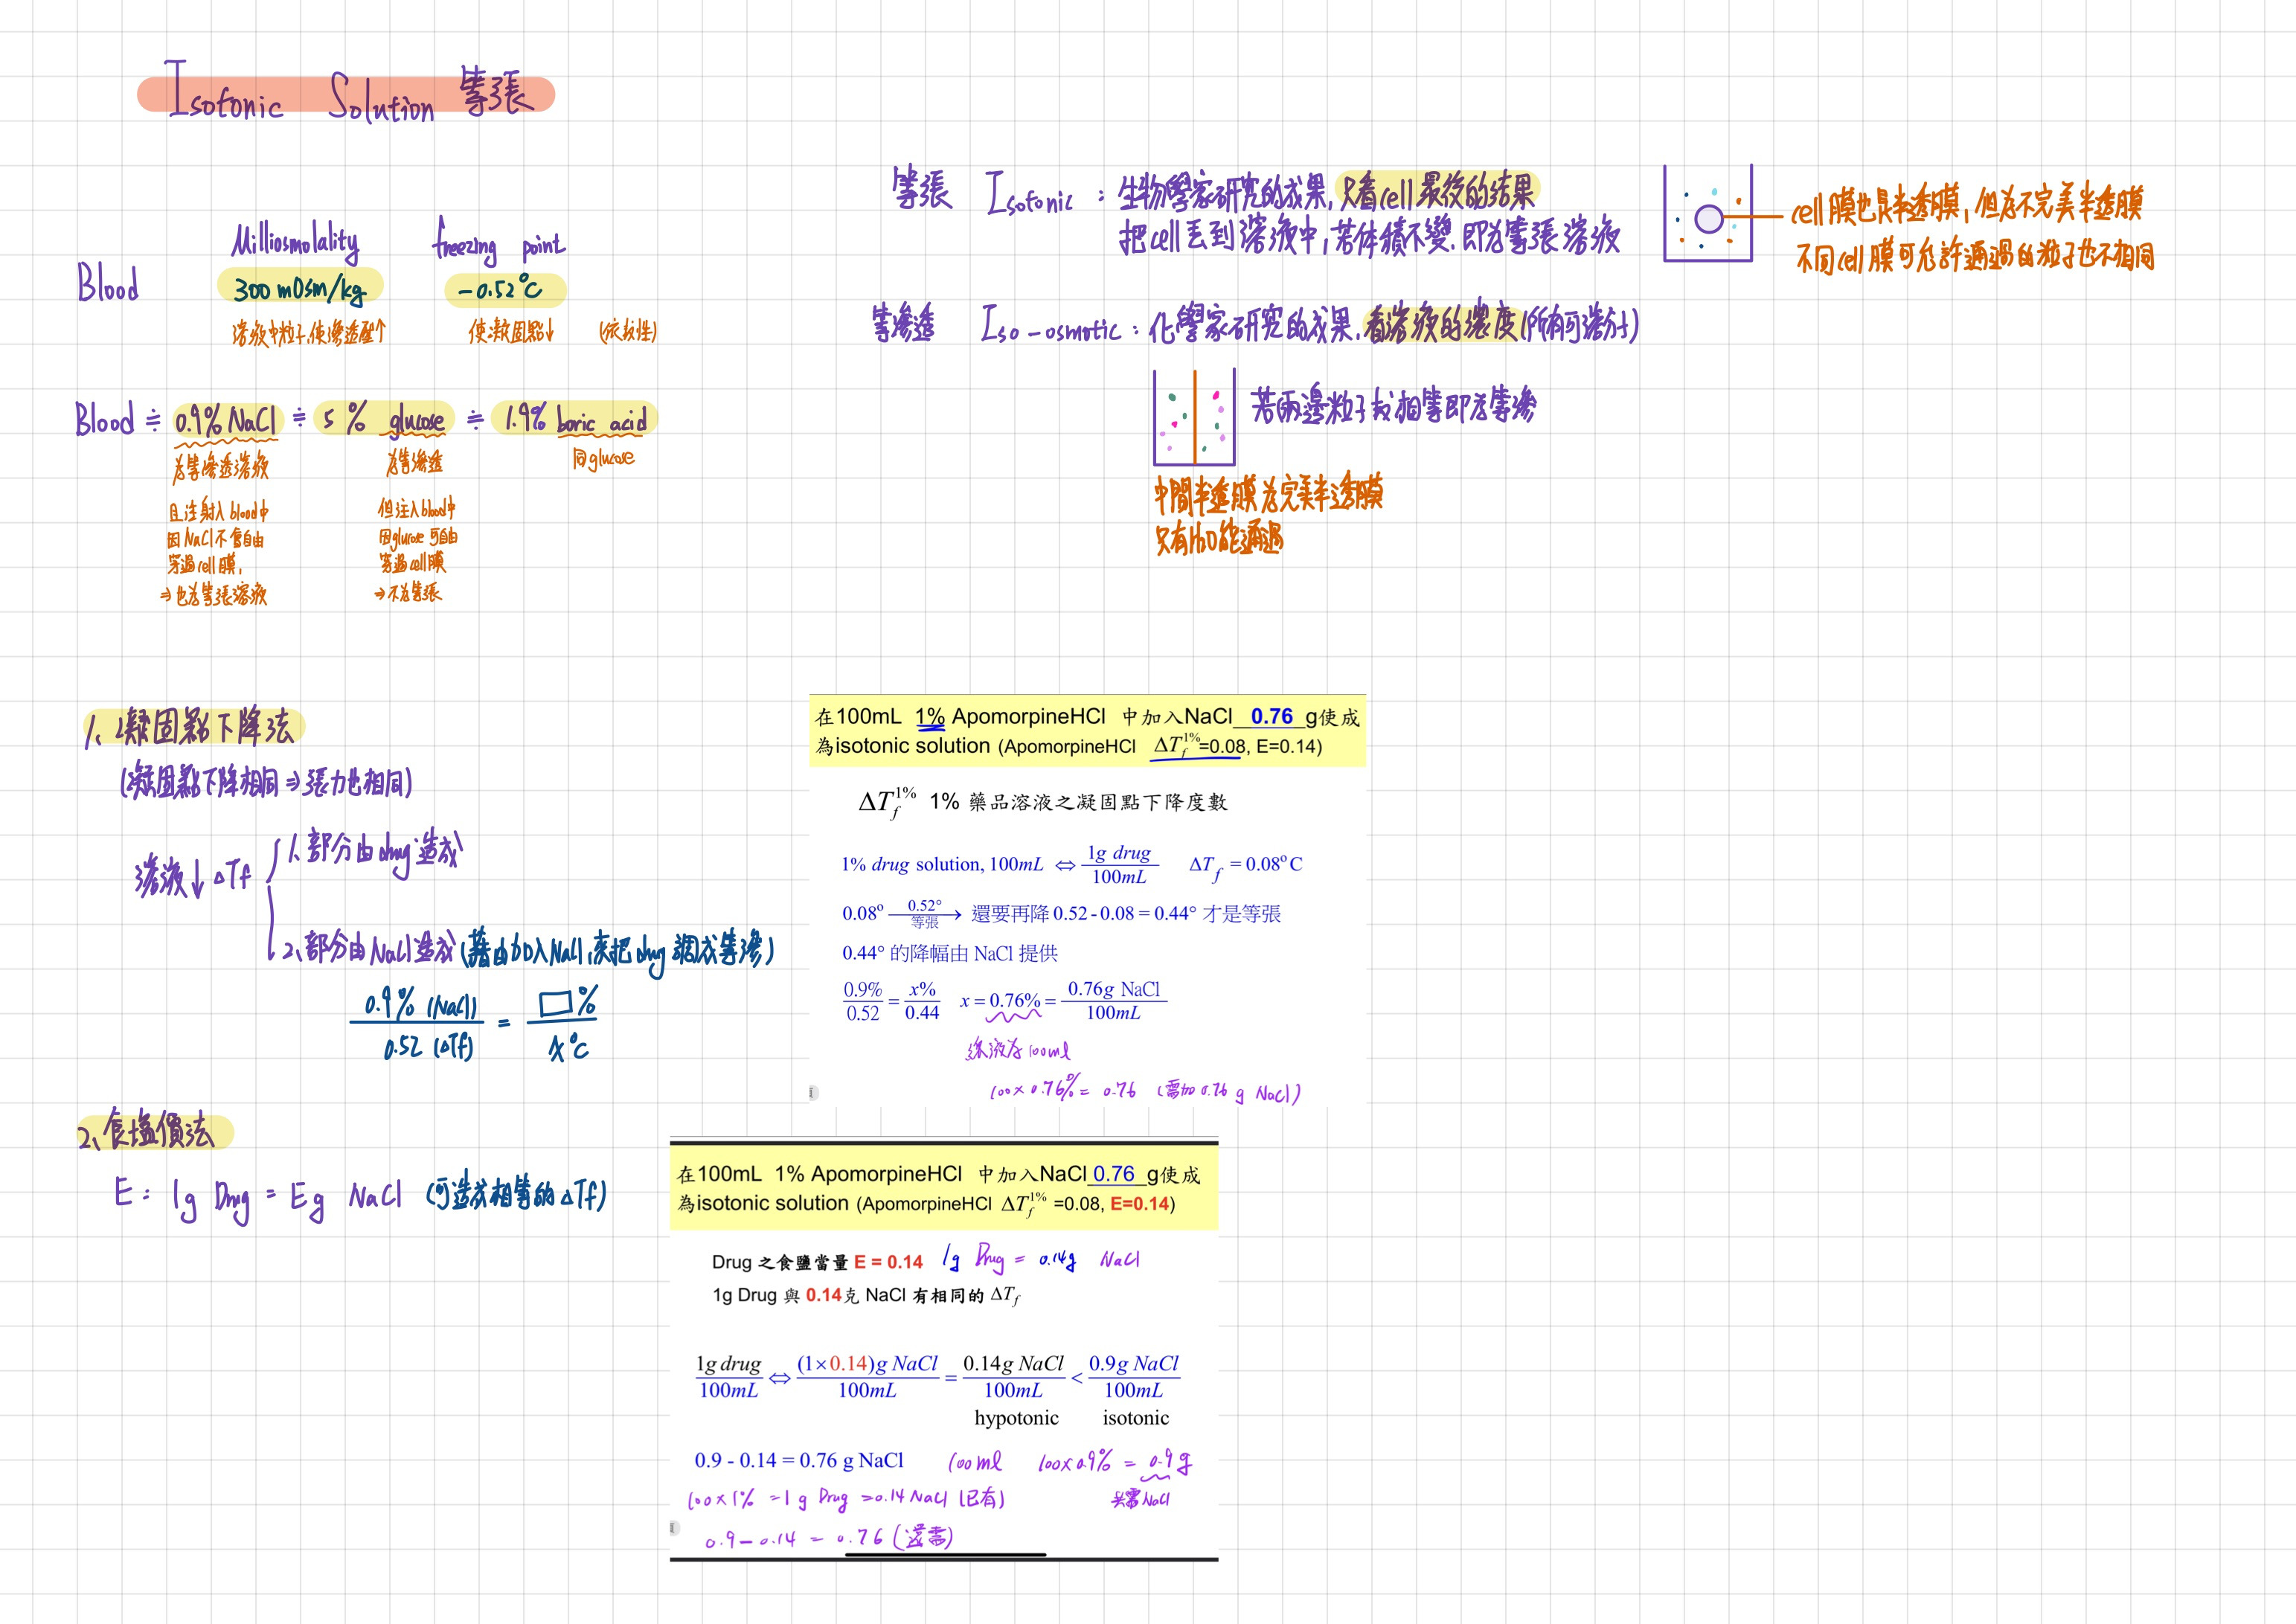 Isotonic Solution 等張
Milliosmolality freezing point
Blood 300 mOsm/kg -0.52°C
溶液中粒子,使滲透壓↑ 使凝固點↓ (依數性)
Blood ≒ 0.9% NaCl ≒ 5% glucose ≒ 1.9% boric acid
為等滲透溶液
且注射入 blood中
因NaCl不會自由
穿過cell膜,
⇒ 也為等張溶液
為等滲透
但注入blood中
因glucose 可自由
穿過cell膜
→ 不為等張
同glucose
等張 Isotonic : 生物學家研究的成果, 只看cell最後的結果
把cell丟到溶液中,若體積不變,即為等張溶液
cell膜也是半透膜, 但為不完美半透膜
不同cell膜可允許通過的粒子也不相同
等滲透 Iso-osmotic : 化學家研究的成果, 看溶液的濃度(所有可溶分子)
若兩邊粒子數相等即為等滲
中間半透膜為完美半透膜
只有H2O能通過
1、凝固點下降法
(凝固點下降相同 ⇒ 張力也相同)
溶液↓ΔTf
1、部分由drug造成
2、部分由NaCl造成 (藉由加入NaCl,來把drug調成等滲)
0.9% (NaCl) / 0.52 (ΔTf) = □% / x°C
在100mL 1% ApomorpineHCl 中加入NaCl 0.76 g使成
為isotonic solution (ApomorpineHCl ΔTf^1%=0.08, E=0.14)
ΔTf^1% 1% 藥品溶液之凝固點下降度數
1% drug solution, 100mL ⇔ 1g drug / 100mL ΔTf = 0.08°C
0.08° —0.52° 等張→ 還要再降 0.52 - 0.08 = 0.44° 才是等張
0.44° 的降幅由 NaCl 提供
0.9% / 0.52 = x% / 0.44 x = 0.76% = 0.76g NaCl / 100mL
溶液為100ml
100 × 0.76% = 0.76 (需加 0.76 g NaCl)
2、食塩價法
E : 1g Drug = Eg NaCl (可造成相等的ΔTf)
在100mL 1% ApomorpineHCl 中加入NaCl 0.76 g使成
為isotonic solution (ApomorpineHCl ΔTf^1% =0.08, E=0.14)
Drug 之食鹽當量 E = 0.14 1g Drug = 0.14g NaCl
1g Drug 與 0.14克 NaCl 有相同的 ΔTf
1g drug / 100mL ⇔ (1×0.14)g NaCl / 100mL = 0.14g NaCl / 100mL < 0.9g NaCl / 100mL
hypotonic isotonic
0.9 - 0.14 = 0.76 g NaCl 100ml 100×0.9% = 0.9g
100×1% = 1 g Drug = 0.14 NaCl (已有) 共需NaCl
0.9 - 0.14 = 0.76 (還需)